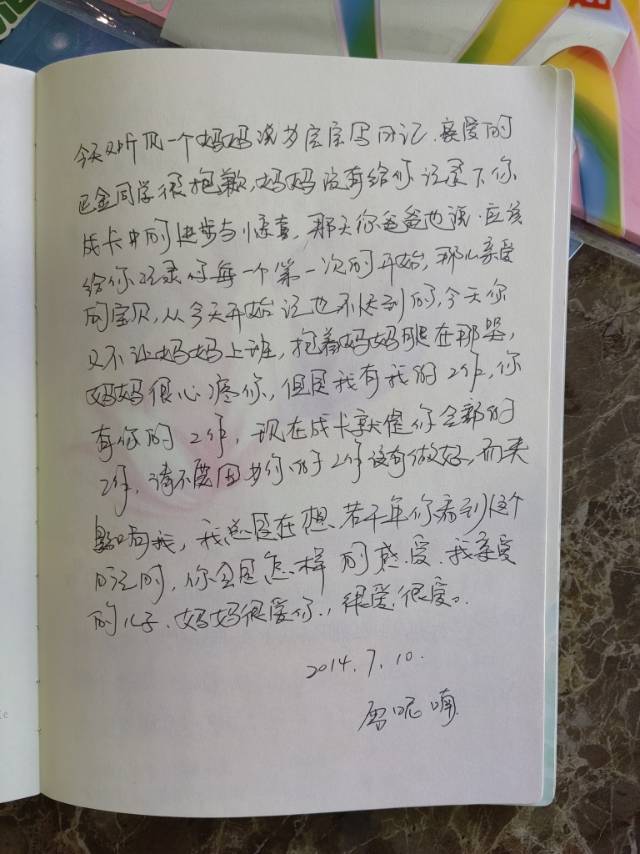 今天听见一个妈妈说为宝宝写日记.亲爱的
金同学很抱歉,妈妈没有给你记录下你
成长中的进步与惊喜,那天你爸爸也说.应该
给你记录你每一个第一次的开始,那么亲爱
的宝贝,从今天开始记也不迟到的,今天你
又不让妈妈上班,抱着妈妈腿在那哭,
妈妈很心疼你,但是我有我的工作,你
有你的工作,现在成长就是你全部的
工作,请不要因为你的工作没有做好,而来
影响我,我总是在想.若干年你看到这个
日记时,你会是怎样的感受.我亲爱
的儿子.妈妈很爱你,很爱很爱。
2014.7.10.
呢喃